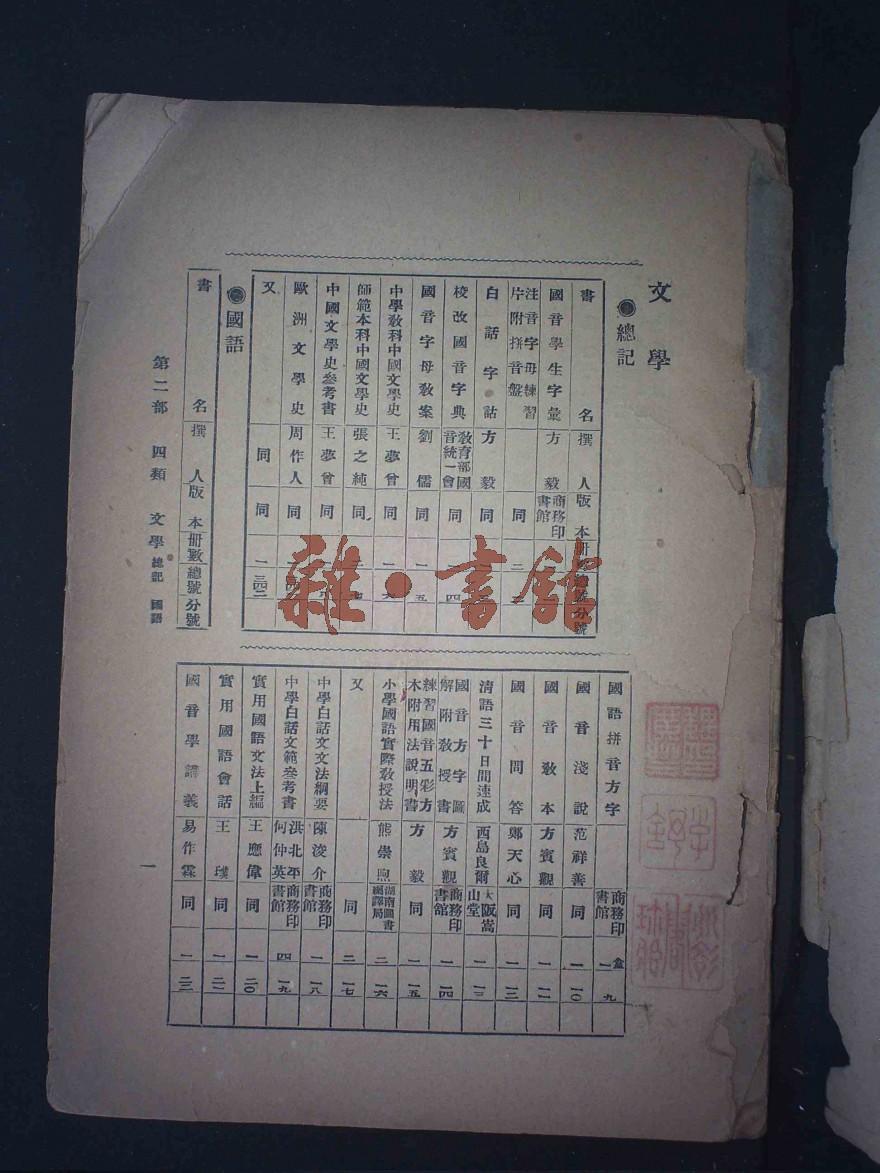 文學
總記
書名 撰人 版本 冊數 總號 分號
國音學生字彙 方毅 商務印書館
注音字母練習片附拼音盤 同 二
白話字詁 方毅 同
校改國音字典 教育部國音統一會 同 一 四
國音字母教案 劉儒 同 一 五
中學教科中國文學史 王夢曾 同 一 六
師範本科中國文學史 張之純 同
中國文學史參考書 王夢曾 同
歐洲文學史 周作人 同
又 同 同 一
國語
書名 撰人 版本 冊數 總號 分號
國語拼音方字 商務印書館 一盒 九
國音淺說 范祥善 同 一 一〇
國音教本 方賓觀 同 一 一一
國音問答 鄭天心 同 一 一二
清語三十日間速成 西島良爾 大阪嵩山堂 一 一三
國音方字圖解附教授書 方賓觀 商務印書館 一 一四
練習國音五彩方木附用法說明書 方毅 同 一 一五
小學國語實際教授法 熊崇煦 湖南圖書編譯局 二 一六
又 同 二 一七
中學白話文文法綱要 陳浚介 商務印書館 一 一八
中學白話文範參考書 洪北平 何仲英 商務印書館 四 一九
實用國語文法上編 王應偉 同 一 二〇
實用國語會話 王璞 同 一 二一
國音學講義 易作霖 同 一 二二
第二部 四類 文學 總記 國語
一
雜·書館